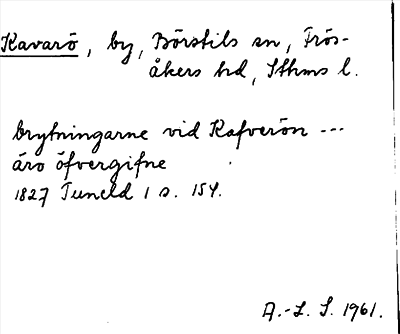 Kavarö, by, Börstils sn, Frös-
åkers hd, Sthms l.
brytningarne vid Kafverön ---
äro öfvergifne
1827 Tuneld 1 s. 154.
A.-L. S. 1961.